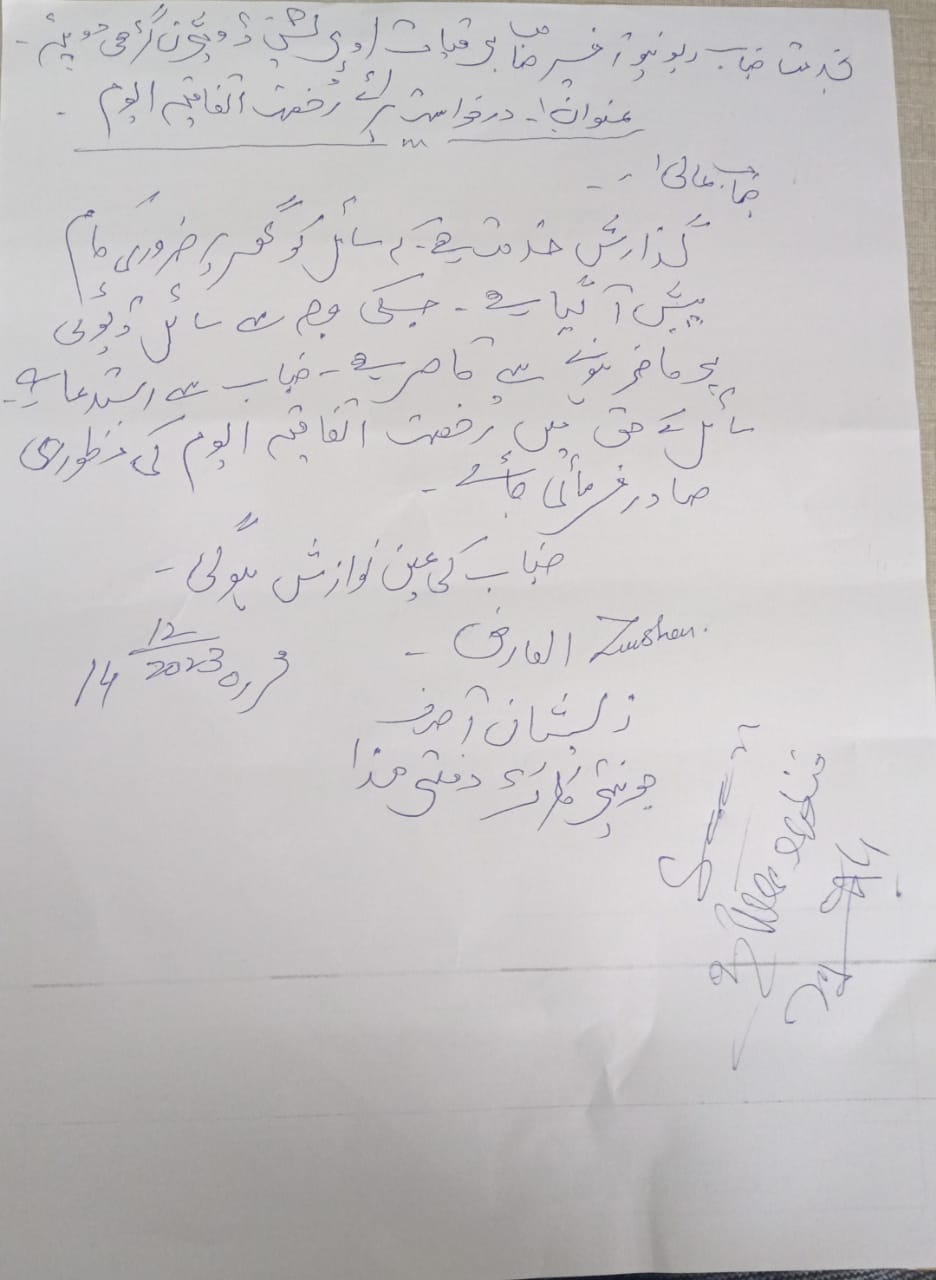 بخدمت جناب ریونیو آفیسر صاحب برقیات اوپریشن ڈویژن گڑھی دوپٹہ۔
عنوان:۔ درخواست برائے رُخصت اتفاقیہ الیوم۔
جناب عالی!۔
گذارش خدمت ہے۔ کہ سائل کو گھر پر ضروری کام
پیش آ گیا ہے۔ جسکی وجہ سے سائل ڈیوٹی
پر حاضر ہونے سے قاصر ہے۔ جناب سے استدعا ہے۔
سائل کے حق میں رُخصت اتفاقیہ الیوم کی منظوری
صادر فرمائی جائے۔
جناب کی عین نوازش ہوگی۔
العارض۔ Zeeshan.
محررہ 14 12/2023
ذیشان آصف
جونیئر کلرک دفتر ھذا